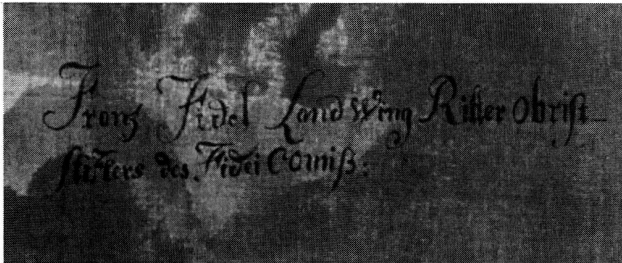 Franz Fidel Land Wing Ritter obrist–
stifters des Fidei Comiß: